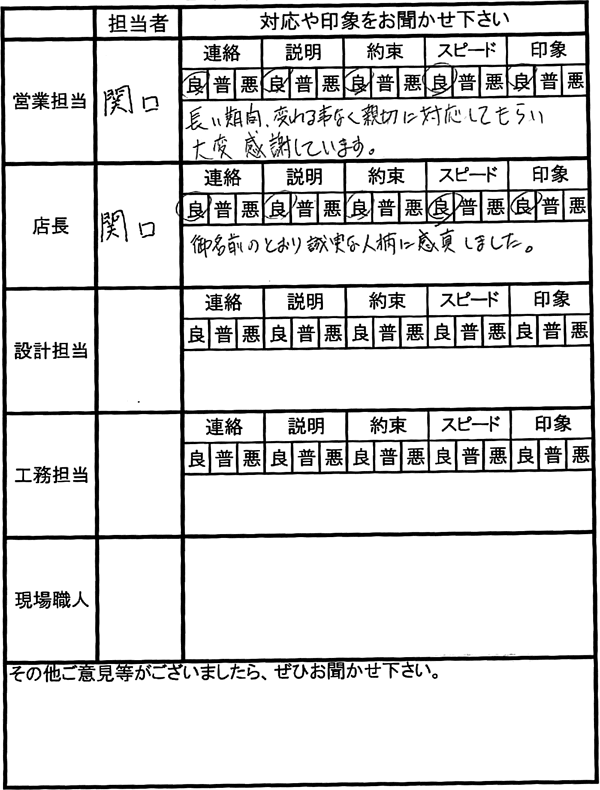 担当者 対応や印象をお聞かせ下さい
営業担当 関口
連絡 説明 約束 スピード 印象
良 普 悪 良 普 悪 良 普 悪 良 普 悪 良 普 悪
長い期間、変わる事なく親切に対応してもらい
大変感謝しています。
店長 関口
連絡 説明 約束 スピード 印象
良 普 悪 良 普 悪 良 普 悪 良 普 悪 良 普 悪
御名前のとおり誠実な人柄に感しました。
設計担当
連絡 説明 約束 スピード 印象
良 普 悪 良 普 悪 良 普 悪 良 普 悪 良 普 悪
工務担当
連絡 説明 約束 スピード 印象
良 普 悪 良 普 悪 良 普 悪 良 普 悪 良 普 悪
現場職人
その他ご意見等がございましたら、ぜひお聞かせ下さい。